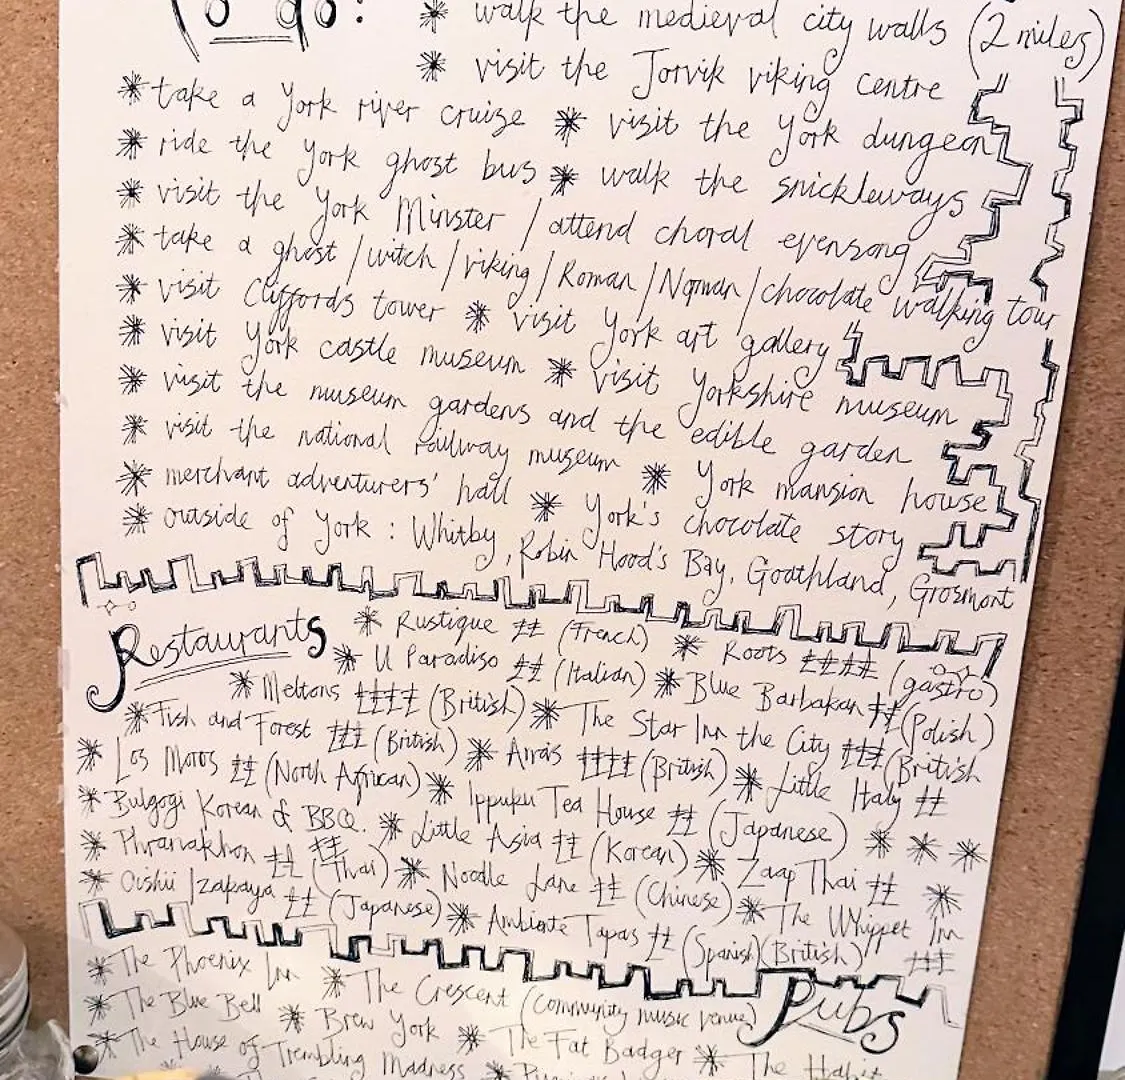 * walk the medieval city walls (2 miles)
* visit the Jorvik viking centre
* take a York river cruise * visit the York dungeon
* ride the York ghost bus * walk the snickleways
* visit the York Minster / attend choral evensong
* take a ghost / witch / viking / Roman / Norman / chocolate walking tour
* visit Cliffords tower * visit York art gallery
* visit York castle museum * visit Yorkshire museum
* visit the museum gardens and the edible garden
* visit the national railway museum * York mansion house
* merchant adventurers' hall * York's chocolate story
* outside of York : Whitby, Robin Hood's Bay, Goathland, Grosmont
Restaurants * Rustique ££ (French) * Roots ££££ (gastro)
* Il Paradiso ££ (Italian) * Blue Barbakan ££ (Polish)
* Meltons ££££ (British) * The Star Inn the City £££ (British
* Fish and Forest £££ (British) * Arras ££££ (British) * Little Italy ££
* Los Moros ££ (North African) * Ippuku Tea House ££ (Japanese) * * *
* Bulgogi Korean & BBQ. ££ * Little Asia ££ (Korean) * Zaap Thai ££ *
* Phranakhon ££ (Thai) * Noodle Lane ££ (Chinese) * The Whippet Inn £££
* Oishii Izakaya ££ (Japanese) * Ambiente Tapas ££ (Spanish) (British)
Pubs
* The Phoenix Inn * The Crescent (community music venue)
* The Blue Bell * Brew York * The Fat Badger * The Habit
* The House of Trembling Madness *